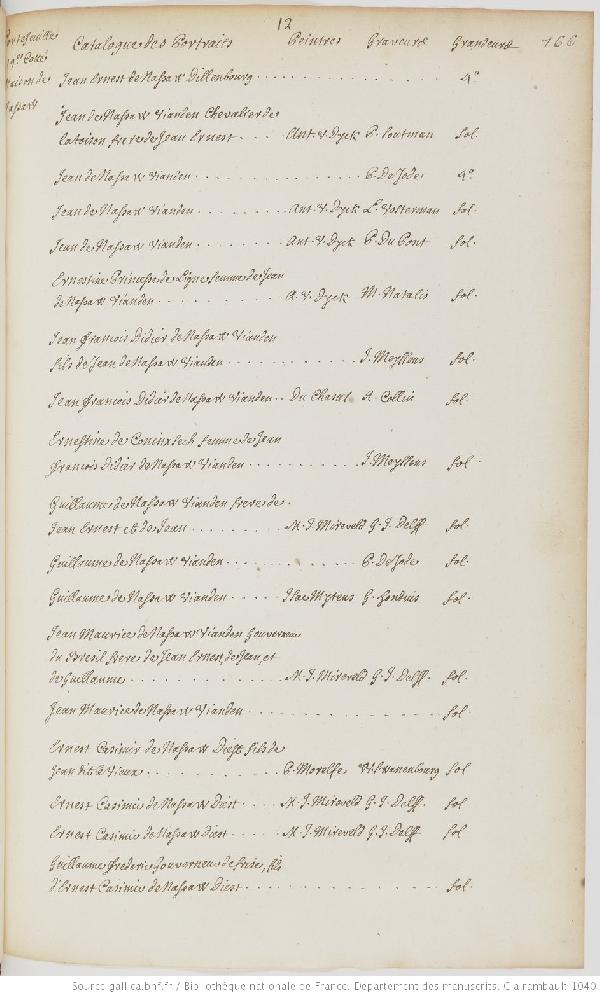 12
Catalogue des Portraits Peintres Graveurs Grandeurs 166
Jean Ernest de Nassaw Dillenbourg . . . 4º
Jean de Nassaw Vianden Chevalier de
la toison frere de Jean Ernest . . . Ant. v. Dyck P. Pontman fol.
Jean de Nassaw Vianden . . . P. De Jode 4º
Jean de Nassaw Vianden . . . Ant. v. Dyck L. Vosterman fol.
Jean de Nassaw Vianden . . . Ant. v. Dyck P. Du Pont fol.
Ernestine Princesse de Ligne femme de Jean
de Nassaw Vianden . . . A. v. Dyck M. Natalis fol.
Jean François Didier de Nassaw Vianden
fils de Jean de Nassaw Vianden . . . J. Meyssens fol.
Jean François Didier de Nassaw Vianden . . Du Chastel R. Collin fol.
Ernestine de femme de Jean
François Didier de Nassaw Vianden . . . J. Meyssens fol.
Guillaume de Nassaw Vianden frere de
Jean Ernest et de Jean . . . M. J. Mireveld G. J. Delff fol.
Guillaume de Nassaw Vianden . . . P. De Jode fol.
Guillaume de Nassaw Vianden . . . Isac Mytens G. Hondius fol.
Jean Maurice de Nassaw Vianden Gouverneur
du Bresil frere de Jean Ernest, de Jean, et
de Guillaume . . . M. J. Mireveld G. J. Delff. fol.
Jean Maurice de Nassaw Vianden . . . fol.
Ernest Casimir de Nassaw Diest fils de
Jean dit le Vieux . . . P. Morelse W. Swanenbourg fol
Ernest Casimir de Nassaw Diest . . . M. J. Mireveld G. J. Delff. fol
Ernest Casimir de Nassaw Diest . . . M. J. Mireveld G. J. Delff fol
Guillaume Frederic Gouverneur de frise, fils
d'Ernest Casimir de Nassaw Diest . . . fol.
Source gallica.bnf.fr / Bibliothèque nationale de France. Département des manuscrits. Clairambault 1040